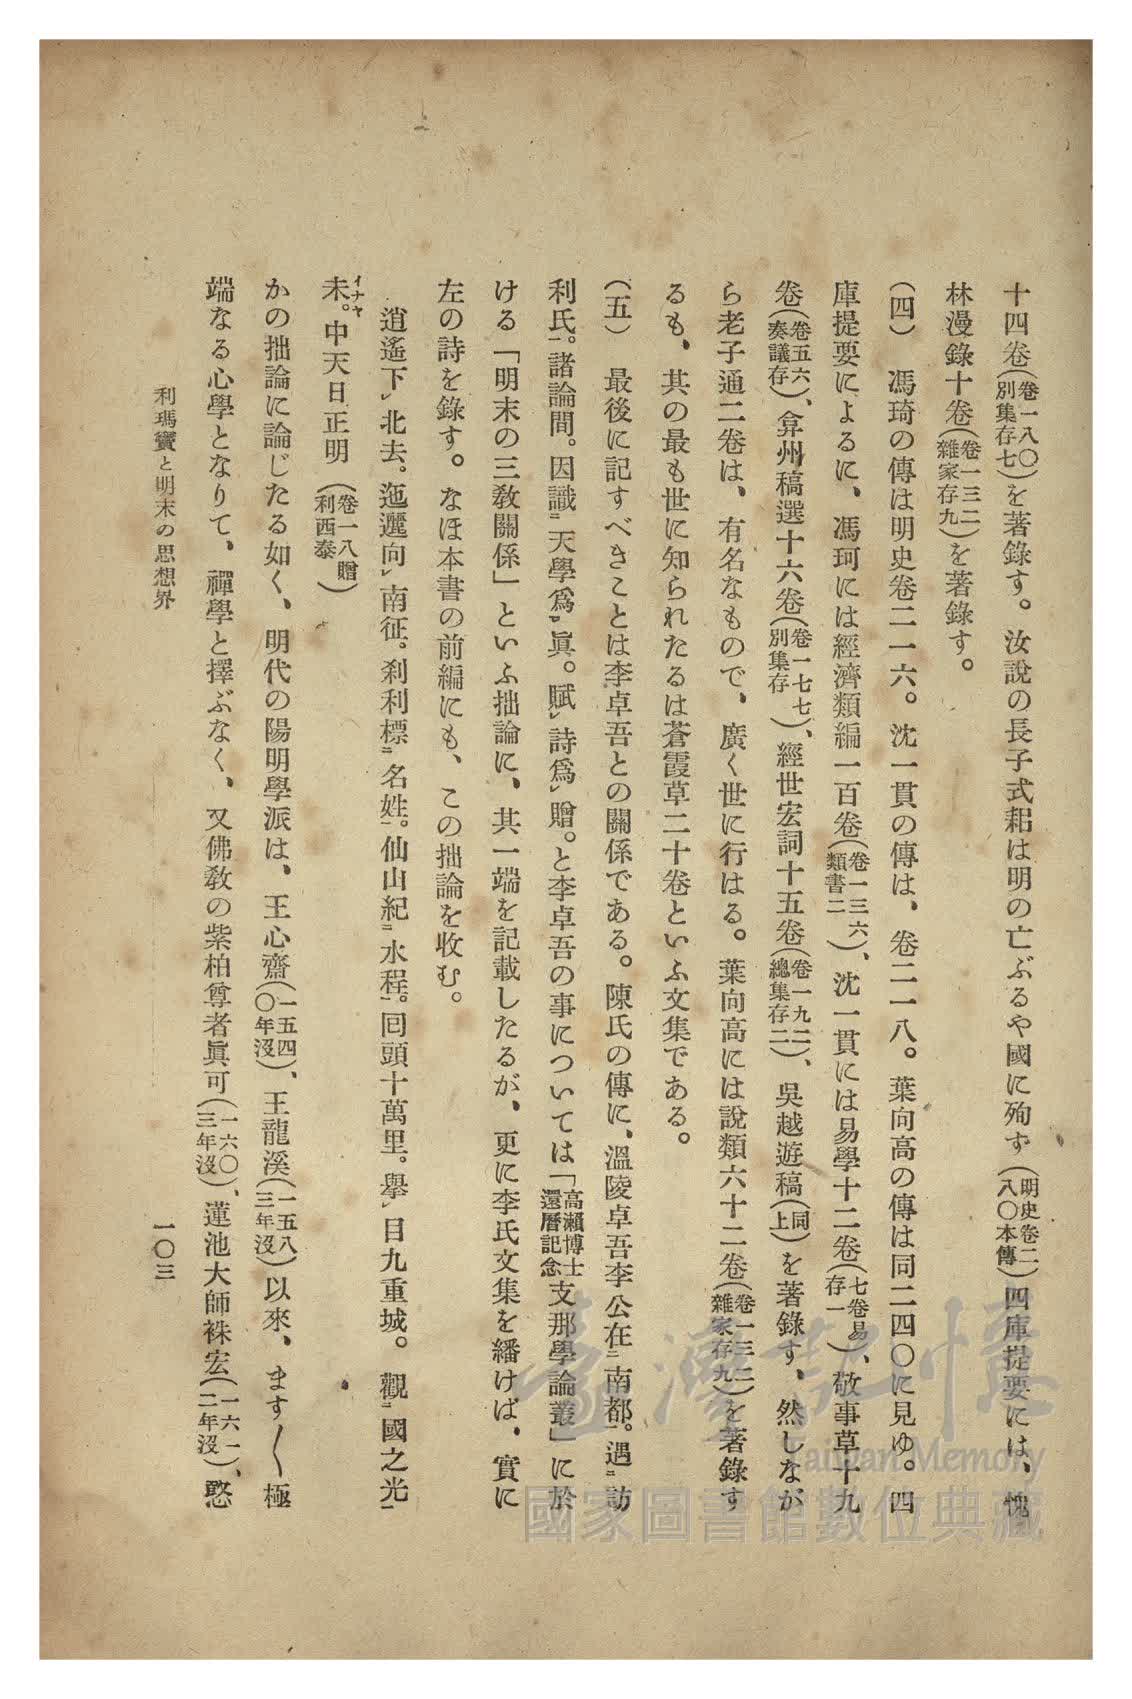 十四卷(卷一八〇別集存七)を著錄す。汝說の長子式耜は明の亡ぶるや國に殉ず(明史卷二八〇本傳)四庫提要には、愧
林漫錄十卷(卷一三二雜家存九)を著錄す。
(四)　馮琦の傳は明史卷二一六。沈一貫の傳は、卷二一八。葉向高の傳は同二四〇に見ゆ。四
庫提要によるに、馮珂には經濟類編一百卷(卷一三六類書二)、沈一貫には易學十二卷(七卷易存一)、敬事草十九
卷(卷五六奏議存)、弇州稿選十六卷(卷一七七別集存)、經世宏詞十五卷(卷一九二總集存二)、吳越遊稿(同上)を著錄す、然しなが
ら老子通二卷は、有名なもので、廣く世に行はる。葉向高には說類六十二卷(卷一三二雜家存九)を著錄す
るも、其の最も世に知られたるは蒼霞草二十卷といふ文集である。
(五)　最後に記すべきことは李卓吾との關係である。陳氏の傳に、溫陵卓吾李公在二南都一。遇二訪
利氏一。諸論間。因識二天學爲一レ眞。賦レ詩爲レ贈。と李卓吾の事については「高瀨博士還曆記念支那學論叢」に於
ける「明末の三敎關係」といふ拙論に、其一端を記載したるが、更に李氏文集を繙けば、實に
左の詩を錄す。なほ本書の前編にも、この拙論を收む。
逍遙下レ北去。迤邐向レ南征。刹利標二名姓一。仙山紀二水程一。囘頭十萬里。擧レ目九重城。觀二國之光一
未イナヤ。中天日正明(卷一八贈利西泰)
かの拙論に論じたる如く、明代の陽明學派は、王心齋(一五四〇年沒)、王龍溪(一五八三年沒)以來、ます〱極
端なる心學となりて、禪學と擇ぶなく、又佛敎の紫柏尊者眞可(一六〇三年沒)、蓮池大師袾宏(一六一二年沒)、憨
利瑪竇と明末の思想界
一〇三
臺灣記憶
Taiwan Memory
國家圖書館數位典藏